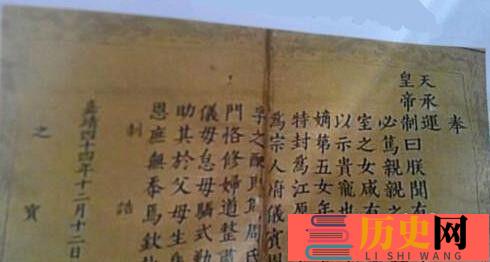 奉
天承運
皇帝制曰朕聞
必篤親親之
室之女咸有
以示貴寵也
嫡第五女年
特封爲江原
爲宗人府儀賓
孚之配
門恪修婦道整肅
儀毋怠毋驕式
助其於父母生
恩庶無忝焉欽
制誥
嘉靖四十四年十二月十二日
之寶
历史网
LI SHI WANG